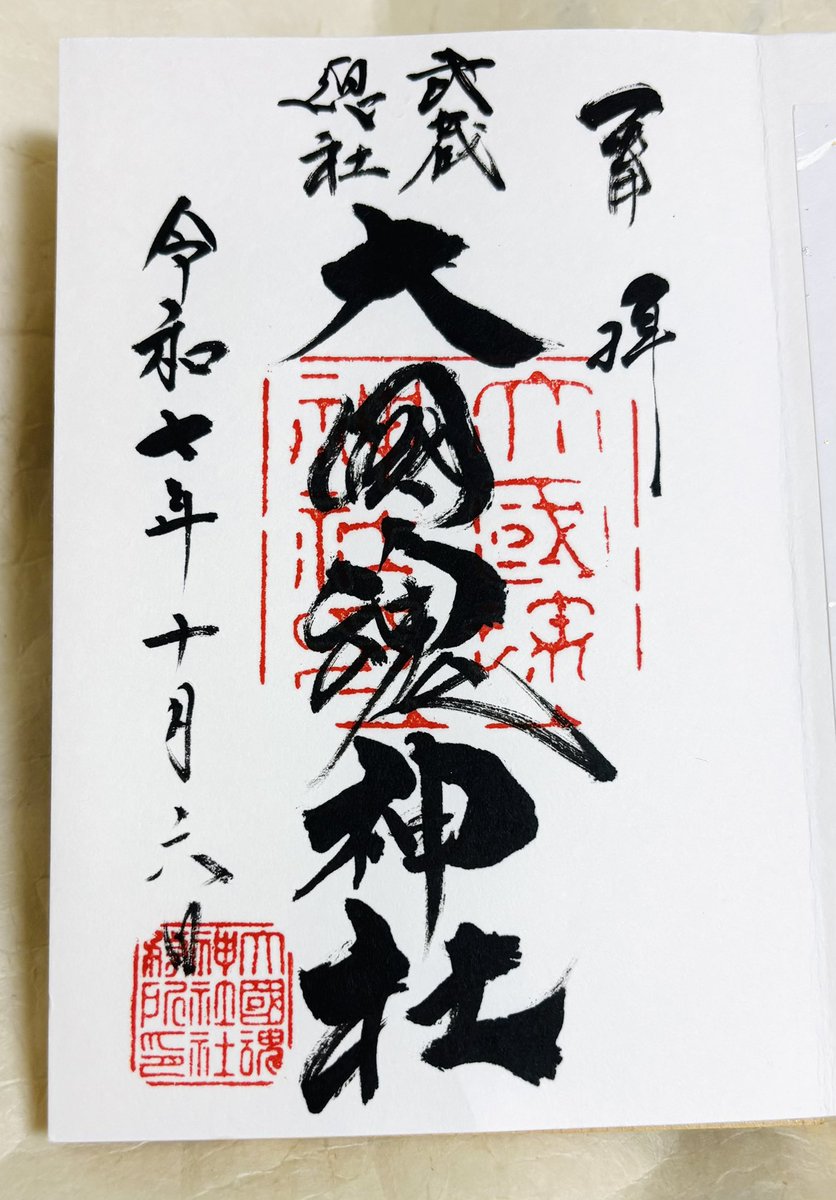 奉拝
武蔵
總社
大國魂神社
令和七年十月六日
大國魂
神社
大國魂
神社社
務所印